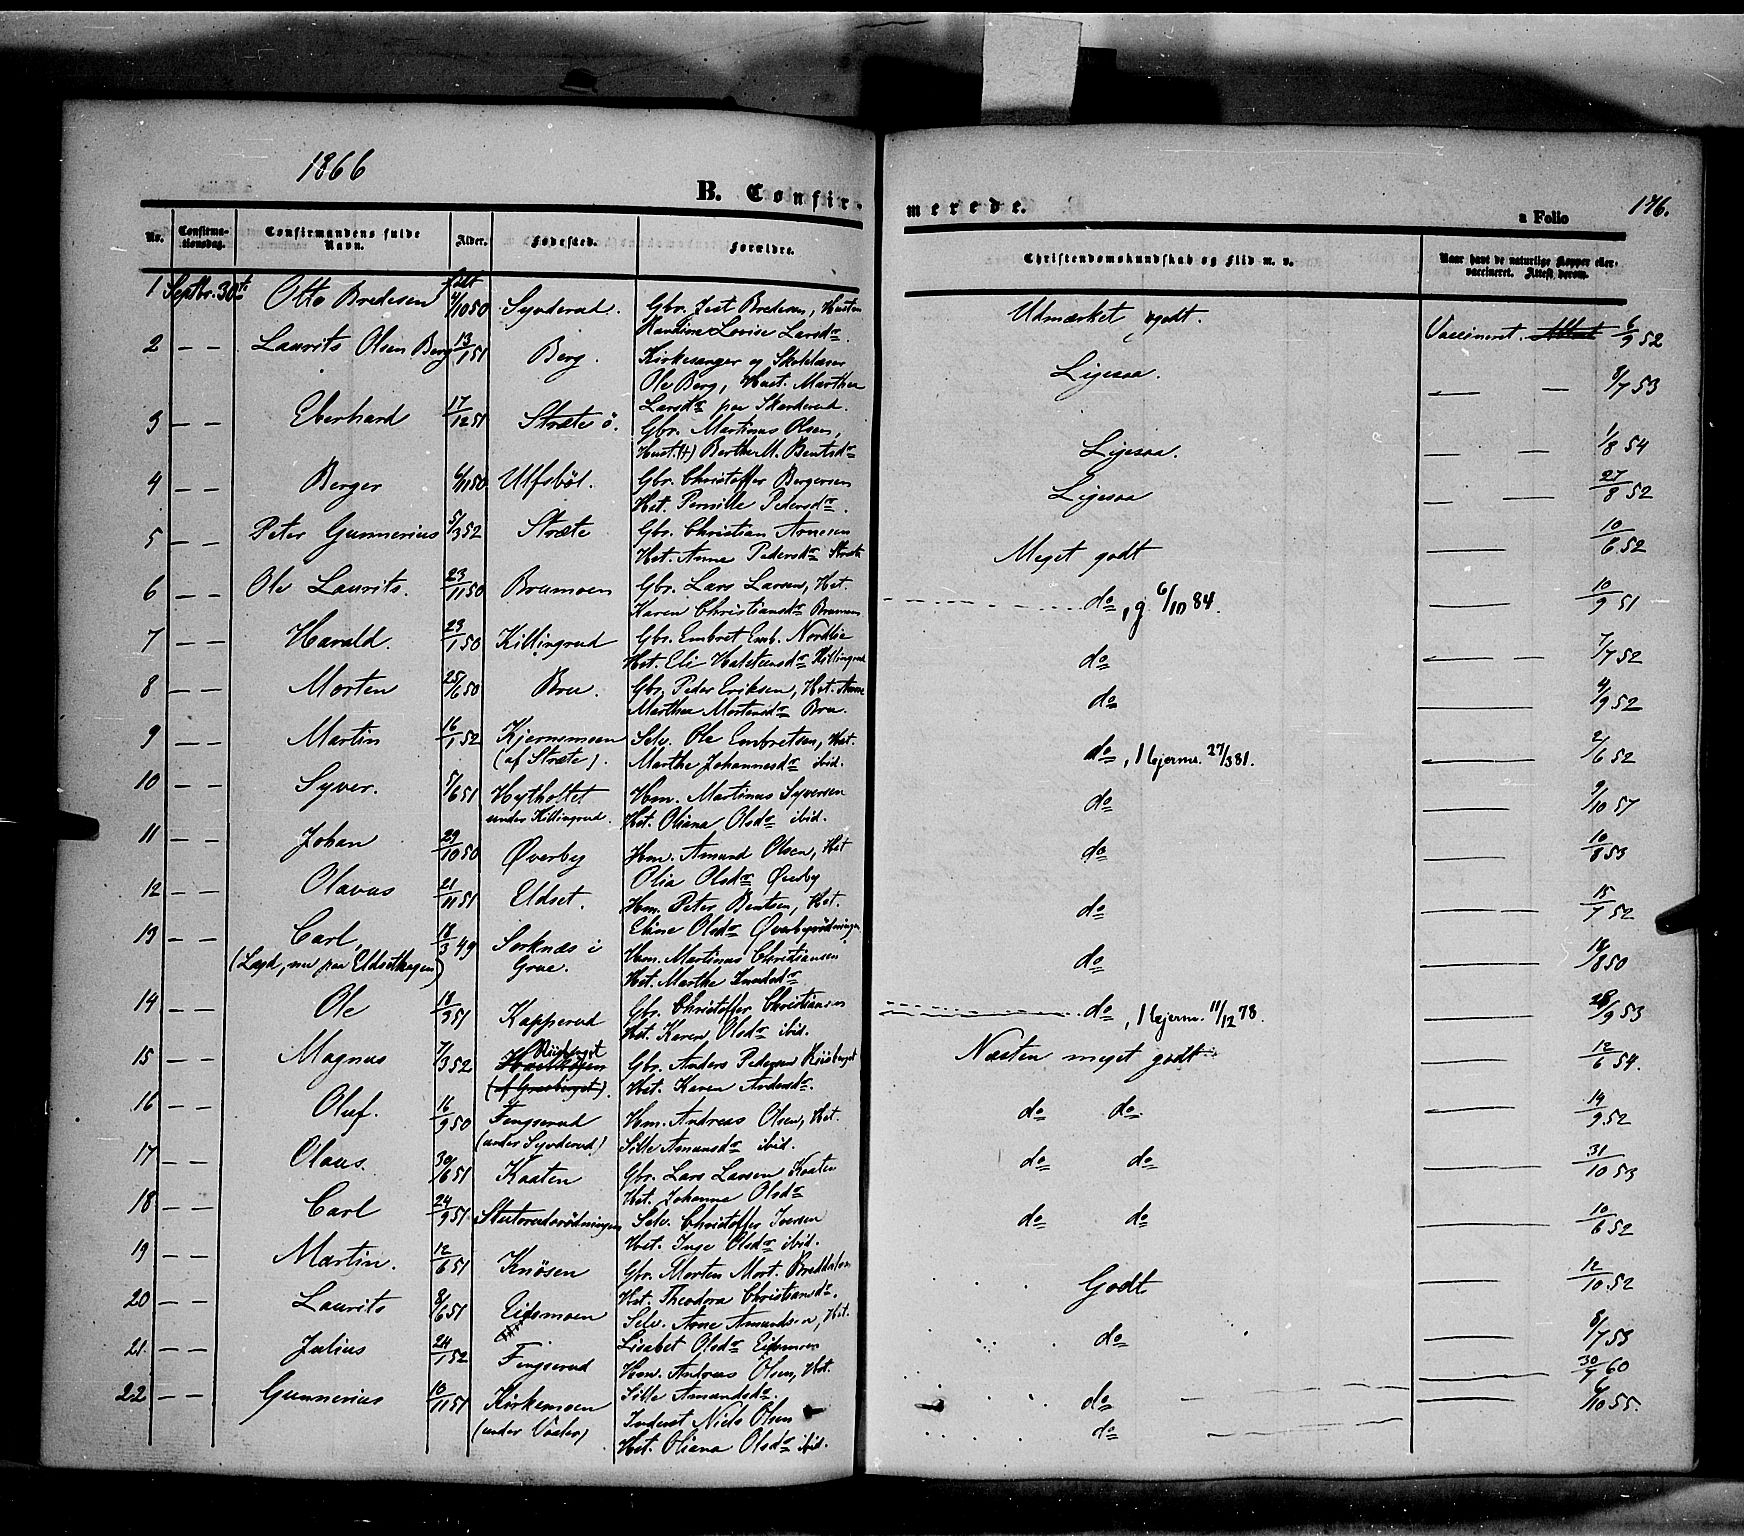 1866
B. Confir-
merede.
a Folio 176.
No. Confirma-tionsdag. Confirmandens fulde Navn. Alder. Fødested. Forældre. Christendomskundskab og Flid m. v. Naar havt de naturlige Kopper eller vaccineret. Attest derom.
1 Septbr. 30te Otto Bredesen født 4/10 50 Syverud. Gbr. Just Bredesen, Husten Udmærket godt. Vaccineret. Attest 6/9 52
Lovise Larsdr.
2 — — Laurits Olsen Berg 13/1 51 Berg. Kirkesanger og Skolelærer Ligesaa. — — 8/7 53
Ole Berg, Hust. Marthea
Larsdr. paa Skarderud.
3 — — Eberhard 17/12 51 Stræte ö. Gbr. Martinus Olsen, Ligesaa. — — 1/8 54
Hust. (+) Berthe M. Berntsdr
4 — — Berger 6/11 50 Ulfsböl. Gbr. Christoffer Bergersen Ligesaa — — 27/8 52
Hst. Pernille Pedersdr.
5 — — Peter Gunnerius 5/3 52 Stræte Gbr. Christian Arnesen Meget godt — 10/6 52
Hst. Anne Pedersdr Stræte
6 — — Ole Laurits. 23/11 50 Brumoen Gbr. Lars Larsen, Hst. do, g 6/10 84. — 10/9 51
Karen Christiansdr Brumoen
7 — — Harald. 23/1 50 Killingrud Gbr. Embret Emb. Nordlie do — — 7/7 52
Hst. Eli Halstensdr Killingrud
8 — — Morten 25/6 50 Bru. Gbr. Peder Eriksen, Hst. Anne do — 4/9 52
Marthea Mortensdr Bru.
9 — — Martin 16/1 52 Kjernsmoen Selv. Ole Embretsen, Hst. do, Hjerm. 27/3 81. — 2/6 52
(af Stræte). Marthe Johannesdr ibid.
10 — — Syver. 5/6 51 Hytholtet Hm. Martinus Syversen do — 9/10 57
under Killingrud. Hst. Oliana Olsdr ibid.
11 — — Johan 29/10 50 Øverby Hm. Amund Olsen, Hst do — 10/8 53
Olia Olsdr Øverby
12 — — Olavus 21/11 51 Eldset. Hm. Peter Bentsen, Hst. do — 15/7 52
Eline Olsdr Øverbyrödningen
13 — — Carl, 18/3 49 Sorknæs i Hm. Martinus Christiansen do — 18/8 50
(Lagd, nu paa Eldsethagen) Grue. Hst. Marthe Knudsdr
14 — — Ole 18/3 51 Kapperud Gbr. Christoffer Christiansen do, Hjerm. 11/12 78. — 28/9 53
Hst. Karen Olsdr ibid.
15 — — Magnus 7/3 52 Riisberget Gbr. Anders Pedersen Riisberget Næsten meget godt — 12/6 54.
(af Graaberget). Hst. Karen Andersdr.
16 — — Oluf. 16/9 50 Fengserud Hm. Andreas Olsen, Hst. do do — 19/9 52
(under Syverud) Sille Amunsdr ibid.
17 — — Olaus. 30/6 51 Kaaten Gbr. Lars Larsen Kaaten do do — 31/10 53
Hst. Johanne Olsdr
18 — — Carl 24/9 51 Stutorudsrödningen Selv. Christoffer Iversen do do — 10/6 52
Hst. Inge Olsdr ibid.
19 — — Martin. 12/6 51 Knösen Gbr. Morten Mort. Breddalen Godt — 12/10 52
Hst. Theodora Christiansdr.
20 — — Laurits 8/6 51 Eidsmoen Selv. Arne Amundsen, Hst. do — 8/7 53
Lisabet Olsdr Eidsmoen
21. — — Julius 24/1 52 Fengserud Hm. Andreas Olsen, Hst. do — 30/7 60
Sille Amundsdr.
22 — — Gunnerius 10/11 51 Kirkemoen Inderst Niels Olsen do — 6/10 55.
(under Vaaler) Hst. Oliana Olsdr ibid.